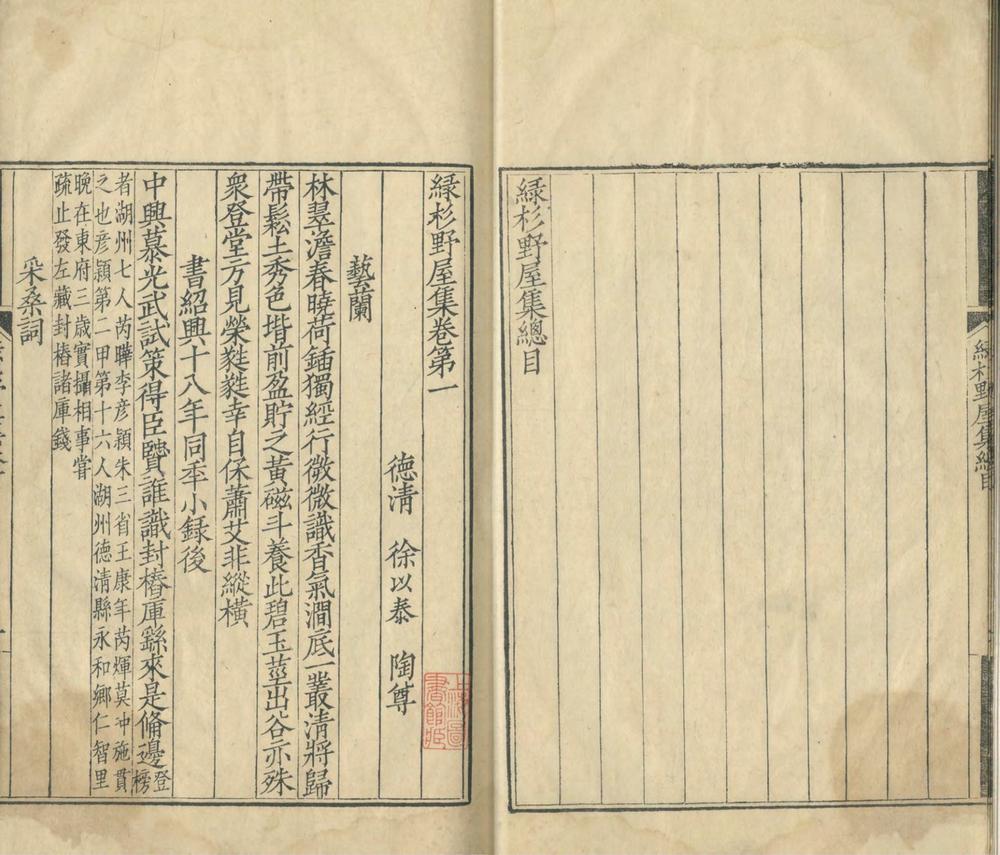 緑杉野屋集總目
緑杉野屋集總目
緑杉野屋集卷第一
徳清　徐以泰　陶尊
藝蘭
林翠澹春曉荷鍤獨經行微微識香氣澗底一叢清將歸
帶鬆土秀色堦前盈貯之黄磁斗養此碧玉莖出谷亦殊
衆登堂方見榮蕤蕤幸自保蕭艾非縱橫
書紹興十八年同秊小録後
中興慕光武試策得臣贒誰識封樁庫繇來是備邊登
榜
者湖州七人芮曄李彦穎朱三省王康年芮煇莫冲施貫
之也彦穎第二甲第十六人湖州德清縣永和鄉仁智里
晩在東府三歲實攝相事甞
疏止發左藏封樁諸庫錢
采桑詞
上海圖
書館藏